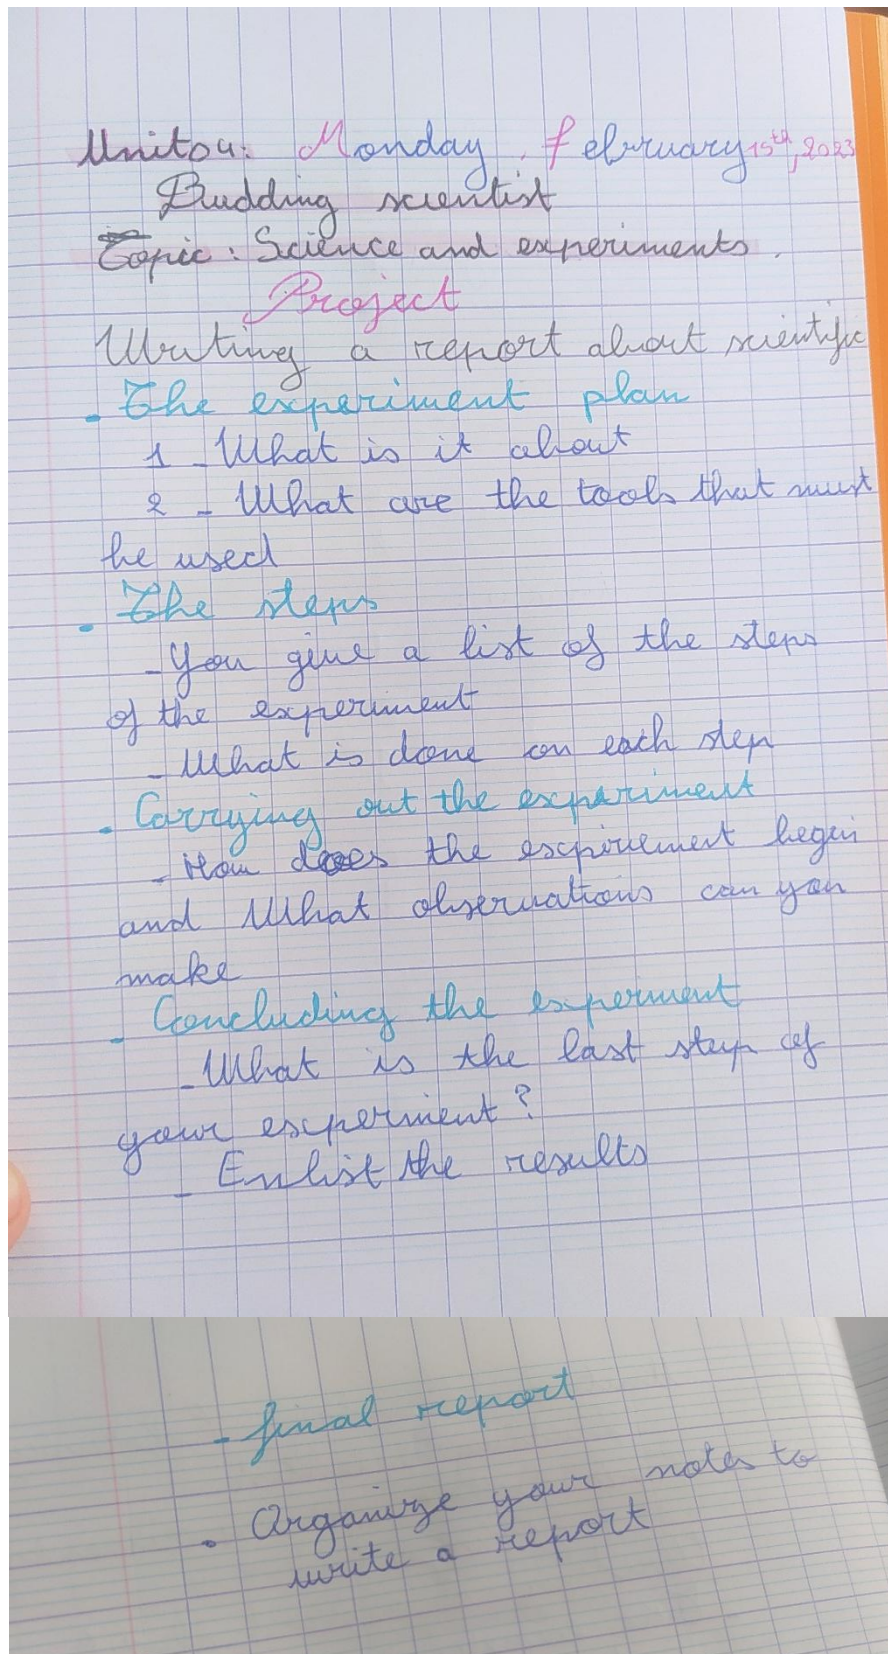 Unit04: Monday, February 15th, 2023
Budding scientist
Topic: Science and experiments.
Project
Writing a report about scientific
- The experiment plan
1 - What is it about
2 - What are the tools that must
be used
- The steps
- You give a list of the steps
of the experiment
- What is done on each step
- Carrying out the experiment
- How does the expirement begin
and What observations can you
make
- Concluding the experment
- What is the last step of
your experment?
- Enlist the results
- final report
. Organize your notes to
write a report